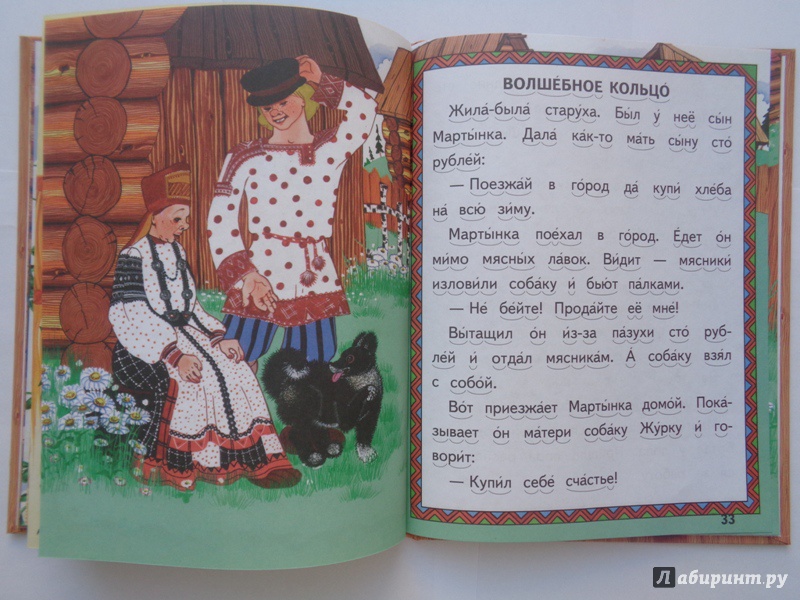 ВОЛШЕ́БНОЕ КОЛЬЦО́
Жила́-была́ стару́ха. Бы́л у́ неё сы́н
Марты́нка. Дала́ ка́к-то ма́ть сы́ну сто́
рубле́й:
— Поезжа́й в го́род да́ купи́ хле́ба
на́ всю́ зи́му.
Марты́нка пое́хал в го́род. Е́дет о́н
ми́мо мясны́х ла́вок. Ви́дит — мясники́
излови́ли соба́ку и́ бью́т па́лками.
— Не́ бе́йте! Прода́йте её мне́!
Вы́тащил о́н и́з-за па́зухи сто́ руб-
ле́й и́ отда́л мясника́м. А́ соба́ку взя́л
с собо́й.
Во́т приезжа́ет Марты́нка домо́й. Пока́-
зывает о́н ма́тери соба́ку Жу́рку и́ го-
вори́т:
— Купи́л себе́ сча́стье!
33
Лабиринт.ру